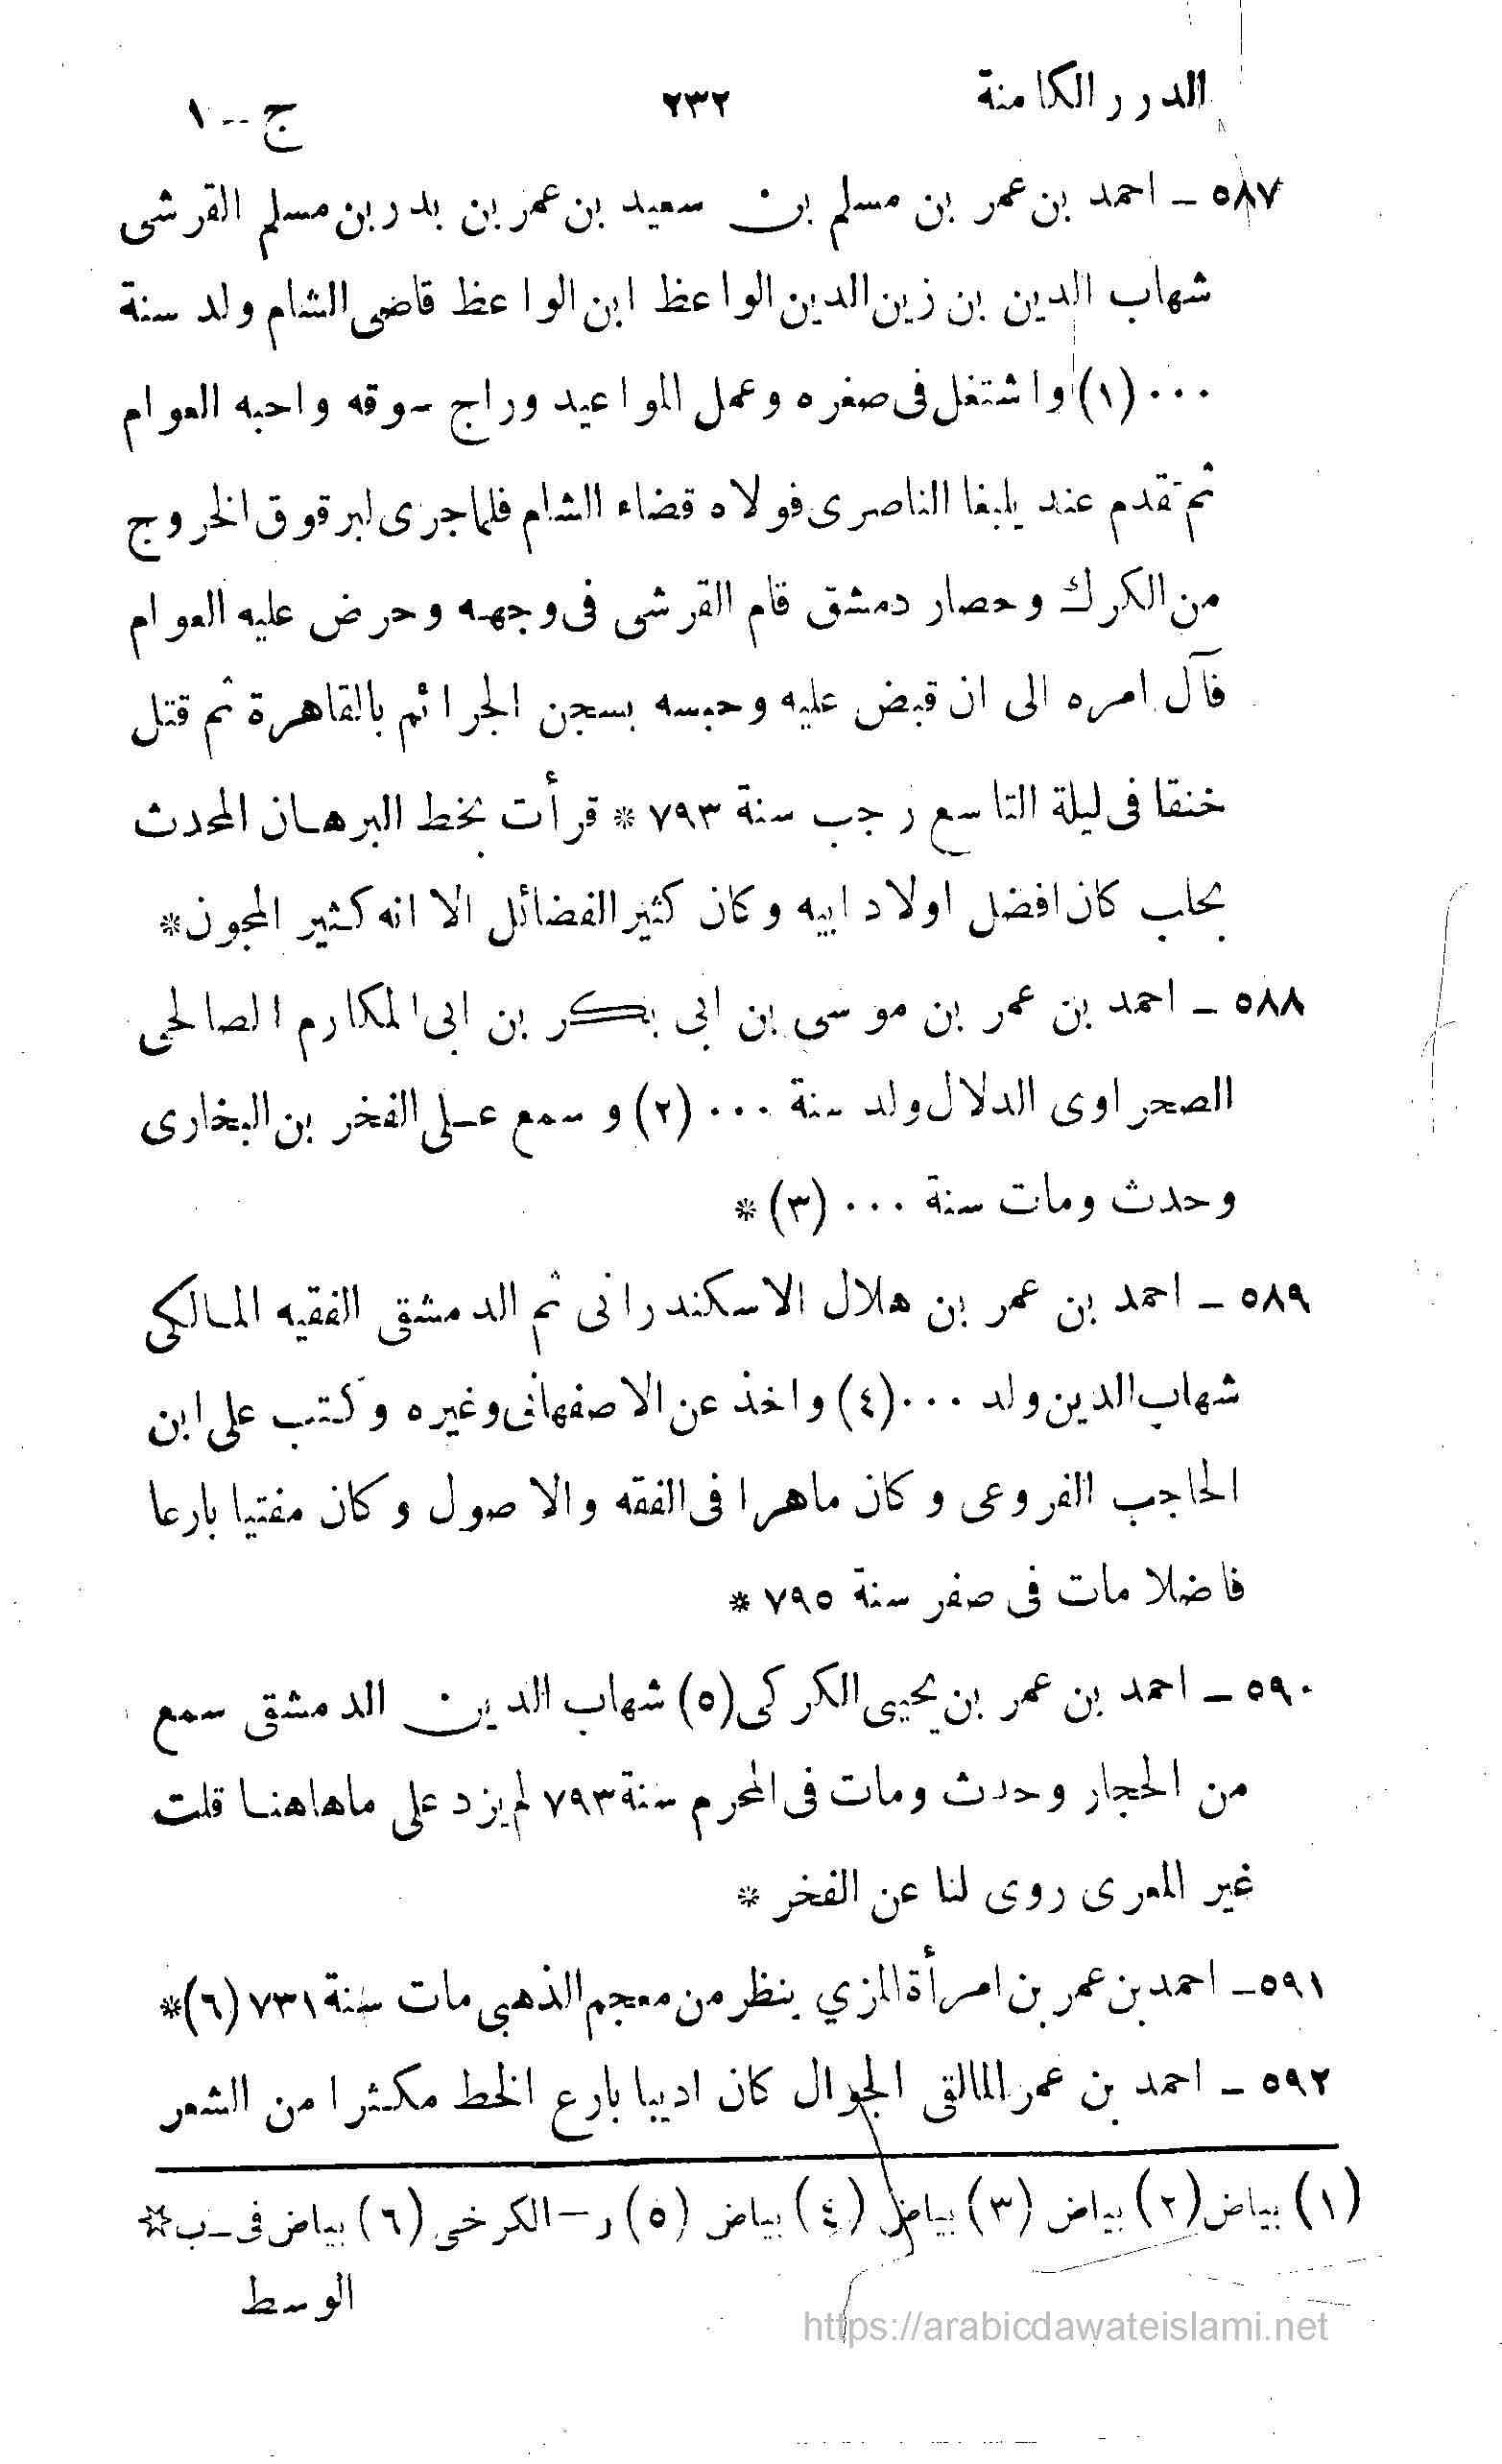 الدرر الكامنة ٢٣٢ ج--١
٥٨٧ - احمد بن عمر بن مسلم بن سعيد بن عمر بن بدر بن مسلم القرشى
شهاب الدين بن زين الدين الواعظ ابن الواعظ قاضى الشام ولد سنة
٠٠٠ (١) واشتغل فى صغره وعمل المواعيد وراج سوقه واحبه العوام
ثم تقدم عند يلبغا الناصرى فولاه قضاء الشام فلما جرى لبرقوق الخروج
من الكرك وحصار دمشق قام القرشى فى وجهه وحرض عليه العوام
فآل امره الى ان قبض عليه وحبسه بسجن الجرائم بالقاهرة ثم قتل
خنقا فى ليلة التاسع رجب سنة ٧٩٣ * قرأت بخط البرهان المحدث
بحلب كان افضل اولاد ابيه وكان كثير الفضائل الا انه كثير المجون *
٥٨٨ - احمد بن عمر بن موسى بن ابى بكر بن ابى المكارم الصالحى
الصحراوى الدلال ولد سنة ٠٠٠ (٢) و سمع على الفخر بن البخارى
وحدث ومات سنة ٠٠٠ (٣) *
٥٨٩ - احمد بن عمر بن هلال الاسكندرانى ثم الدمشقى الفقيه المالكى
شهاب الدين ولد ٠٠٠ (٤) واخذ عن الاصفهانى وغيره وكتب على ابن
الحاجب الفروعى وكان ماهرا فى الفقه والاصول وكان مفتيا بارعا
فاضلا مات فى صفر سنة ٧٩٥ *
٥٩٠ - احمد بن عمر بن يحيى الكركى (٥) شهاب الدين الدمشقى سمع
من الحجار وحدث ومات فى المحرم سنة ٧٩٣ لم يزد على ماهاهنا قلت
غير المعرى روى لنا عن الفخر *
٥٩١ - احمد بن عمر بن امرأة المزي ينظر من معجم الذهبى مات سنة ٧٣١ (٦) *
٥٩٢ - احمد بن عمر المالقى الجوال كان اديبا بارع الخط مكثرا من الشعر
(١) بياض (٢) بياض (٣) بياض (٤) بياض (٥) ر - الكرخى (٦) بياض فى - ب ☆
الوسط
https://arabicdawateislami.net